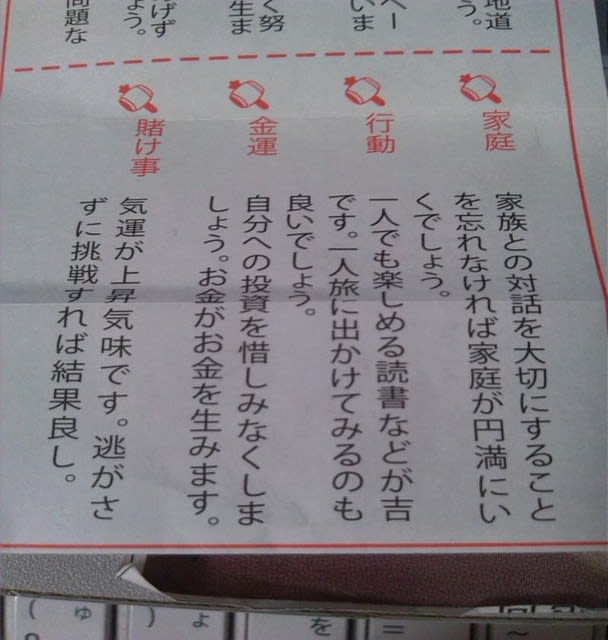 地道
う。
ペー
いま
く努
生ま
げず
ょう。
問題な
家庭
家族との対話を大切にすること
を忘れなければ家庭が円満にい
くでしょう。
行動
一人でも楽しめる読書などが吉
です。一人旅に出かけてみるのも
良いでしょう。
金運
自分への投資を惜しみなくしま
しょう。お金がお金を生みます。
賭け事
気運が上昇気味です。逃がさ
ずに挑戦すれば結果良し。
( ゅ
) ょ
を
=